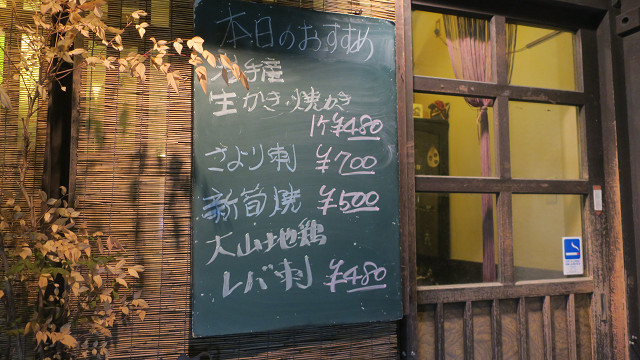 本日のおすすめ
岩手産
生かき・焼かき
1ケ¥480
さより刺 ¥700
新筍焼 ¥500
大山地鶏
レバ刺 ¥480